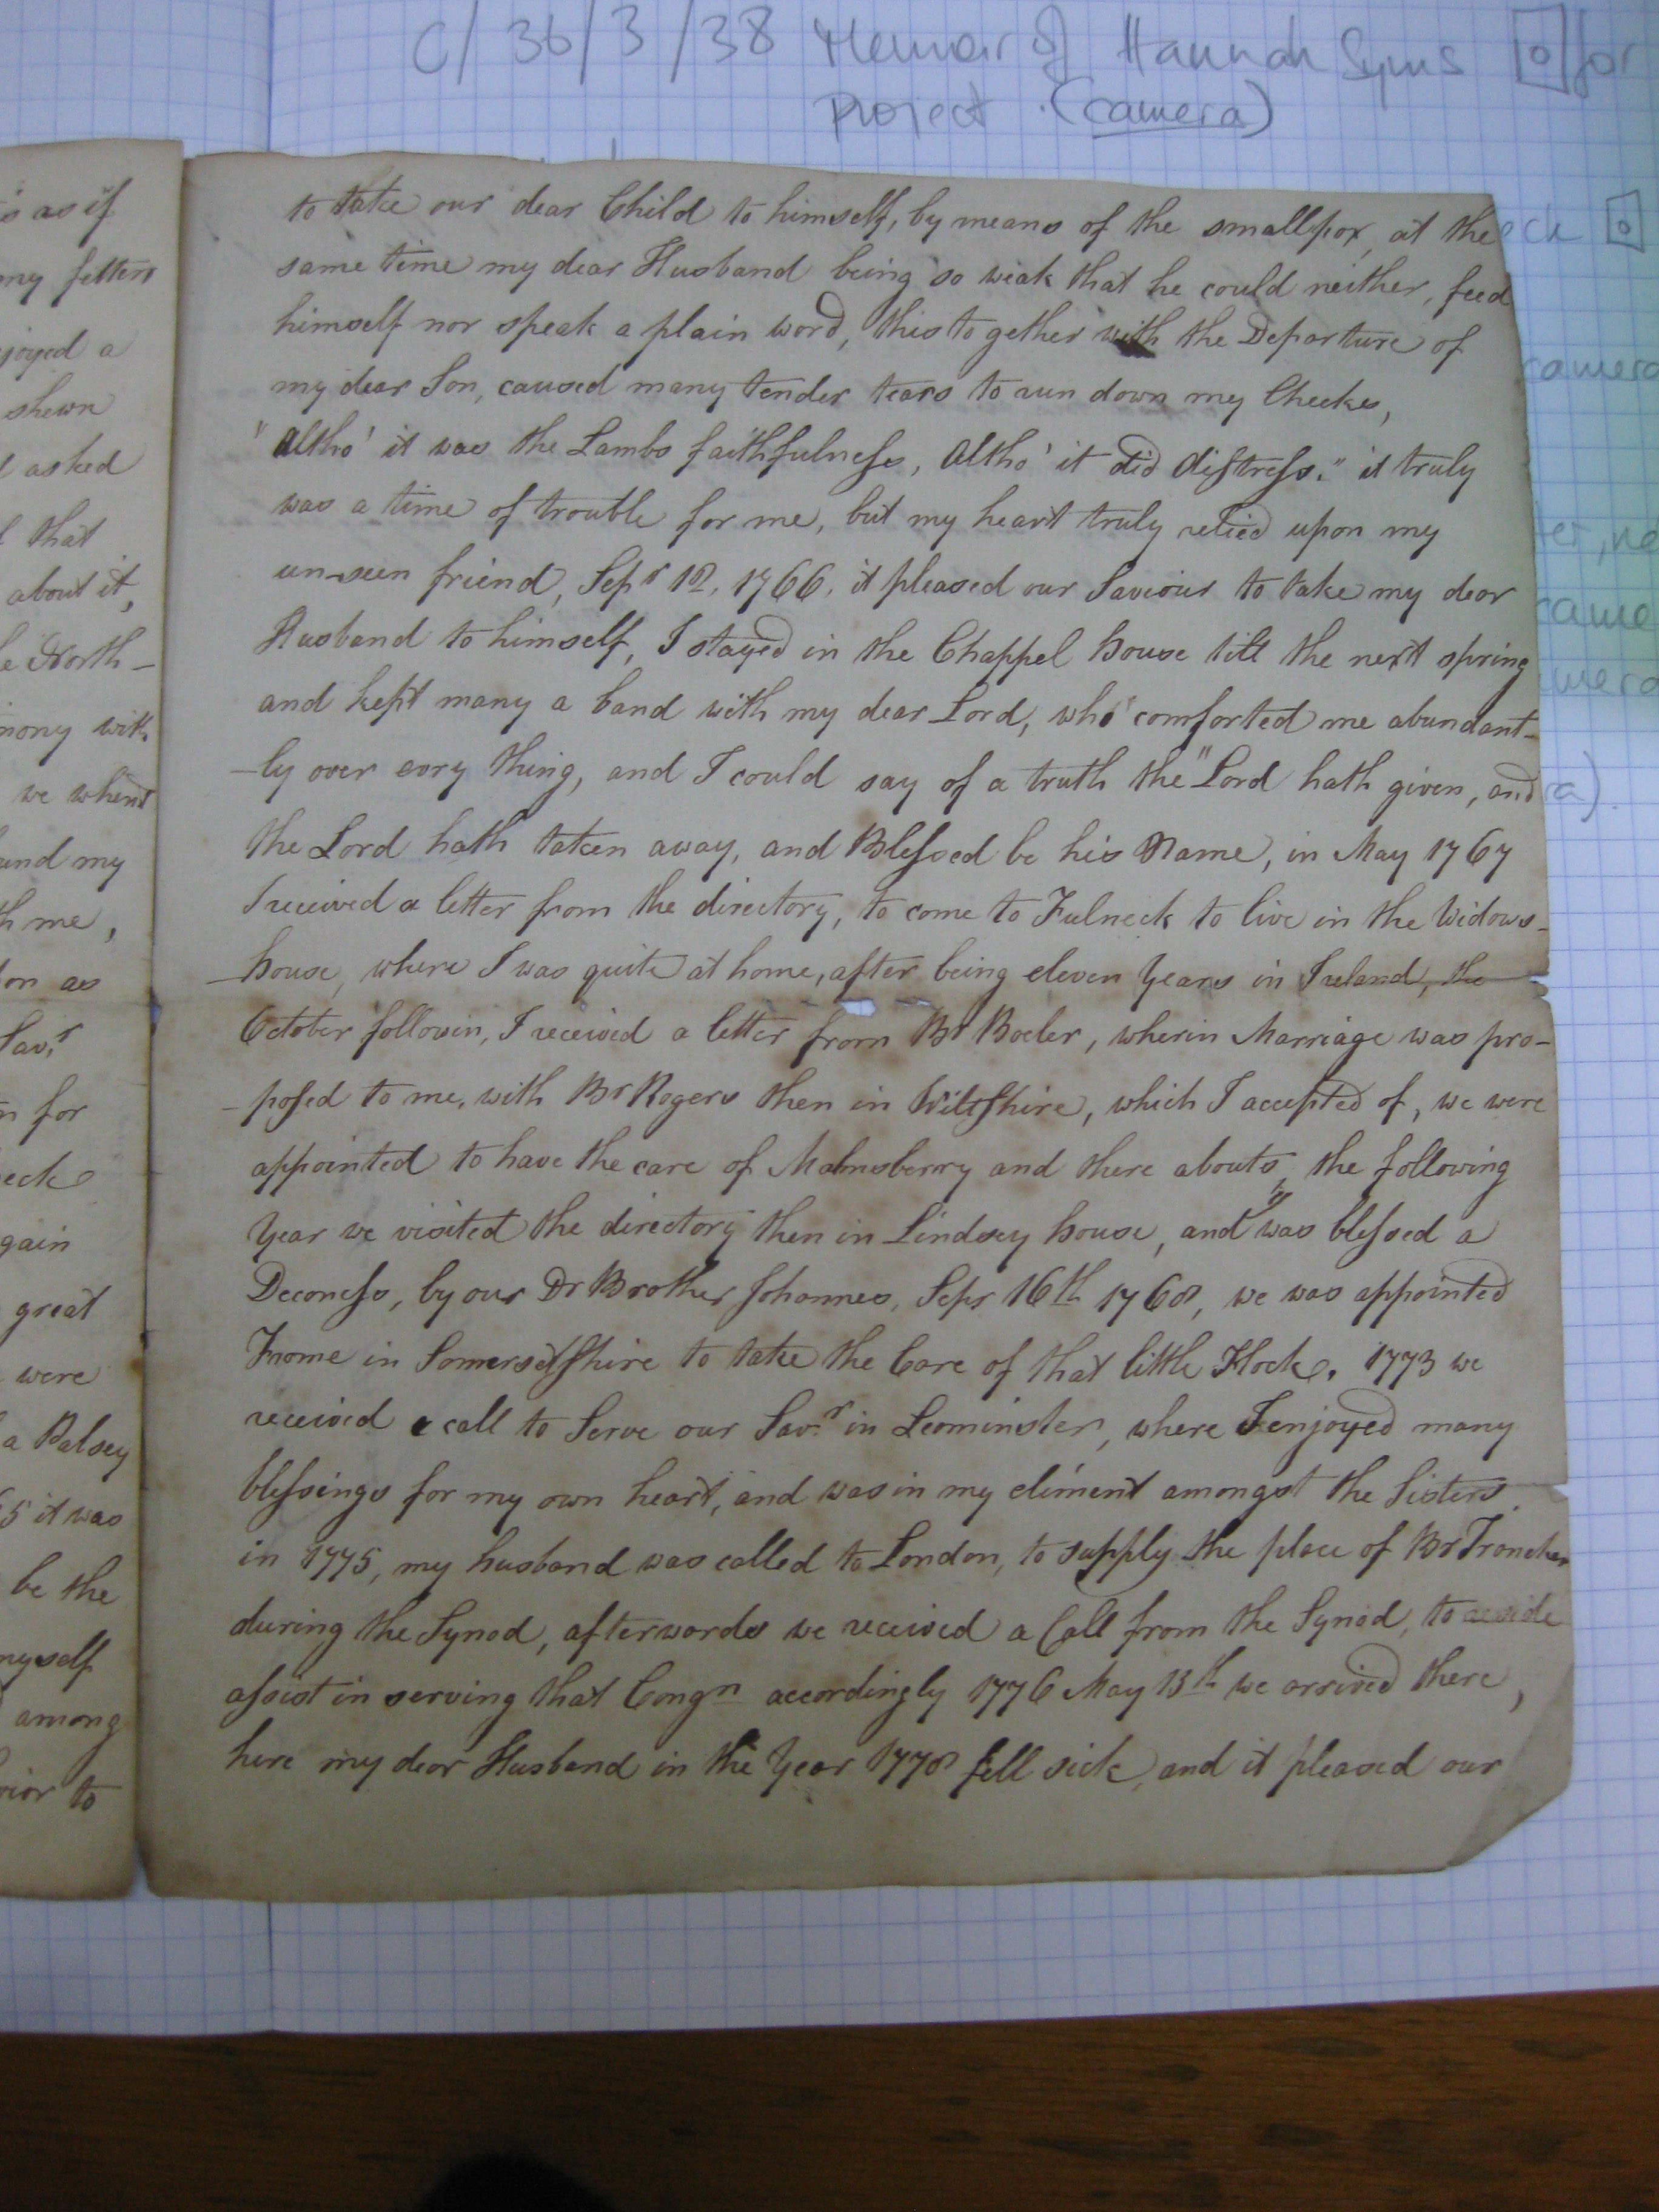 C/36/3/38 Memoir of Hannah Syms for
Project (camera)
to take our dear Child to himself, by means of the smallpox, at the
same time my dear Husband being so weak that he could neither, feed
himself nor speak a plain word, this together with the Departure of
my dear Son, caused many tender tears to run down my Cheeks,
"altho' it was the Lambs faithfulness, altho' it did distress." it truly
was a time of trouble for me, but my heart truly relied upon my
un-seen friend, Sepr 18. 1766. it pleased our Saviour to take my dear
Husband to himself, I stayed in the Chappel house till the next spring
and kept many a band with my dear Lord, who comforted me abundant-
-ly over evry thing, and I could say of a truth the "Lord hath given, and
the Lord hath taken away, and Blessed be his Name, in May 1767
I received a letter from the directory, to come to Fulneck to live in the Widows-
-house, where I was quite at home, after being eleven Years in Ireland, the
October followin, I received a letter from Br Boeler, wherin Marriage was pro-
-posed to me, with Br Rogers then in Wiltshire, which I accepted of, we were
appointed to have the care of Malmsberry and there abouts, the following
Year we visited the directory then in Lindsey house, and was blessed a
Deconess, by our Dr Brother Johannes, Sepr 16th 1768, we was appointed
Frome in Somersetshire to take the Care of that little Flock. 1773 we
received a call to Serve our Savr in Leominster, where I enjoyed many
blessings for my own heart, and was in my eliment amongst the Sisters.
in 1775, my husband was called to London, to supply the place of Br Troneker
during the Synod, afterwards we received a Call from the Synod, to reside
assist in serving that Congn accordingly 1776 May 13th we arrived there,
here my dear Husband in the Year 1778 fell sick, and it pleased our